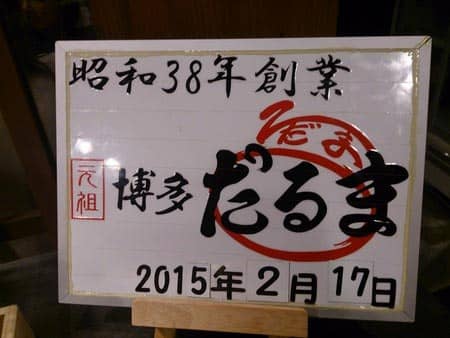 昭和38年創業
だるま
元祖
博多 だるま
2015年2月17日